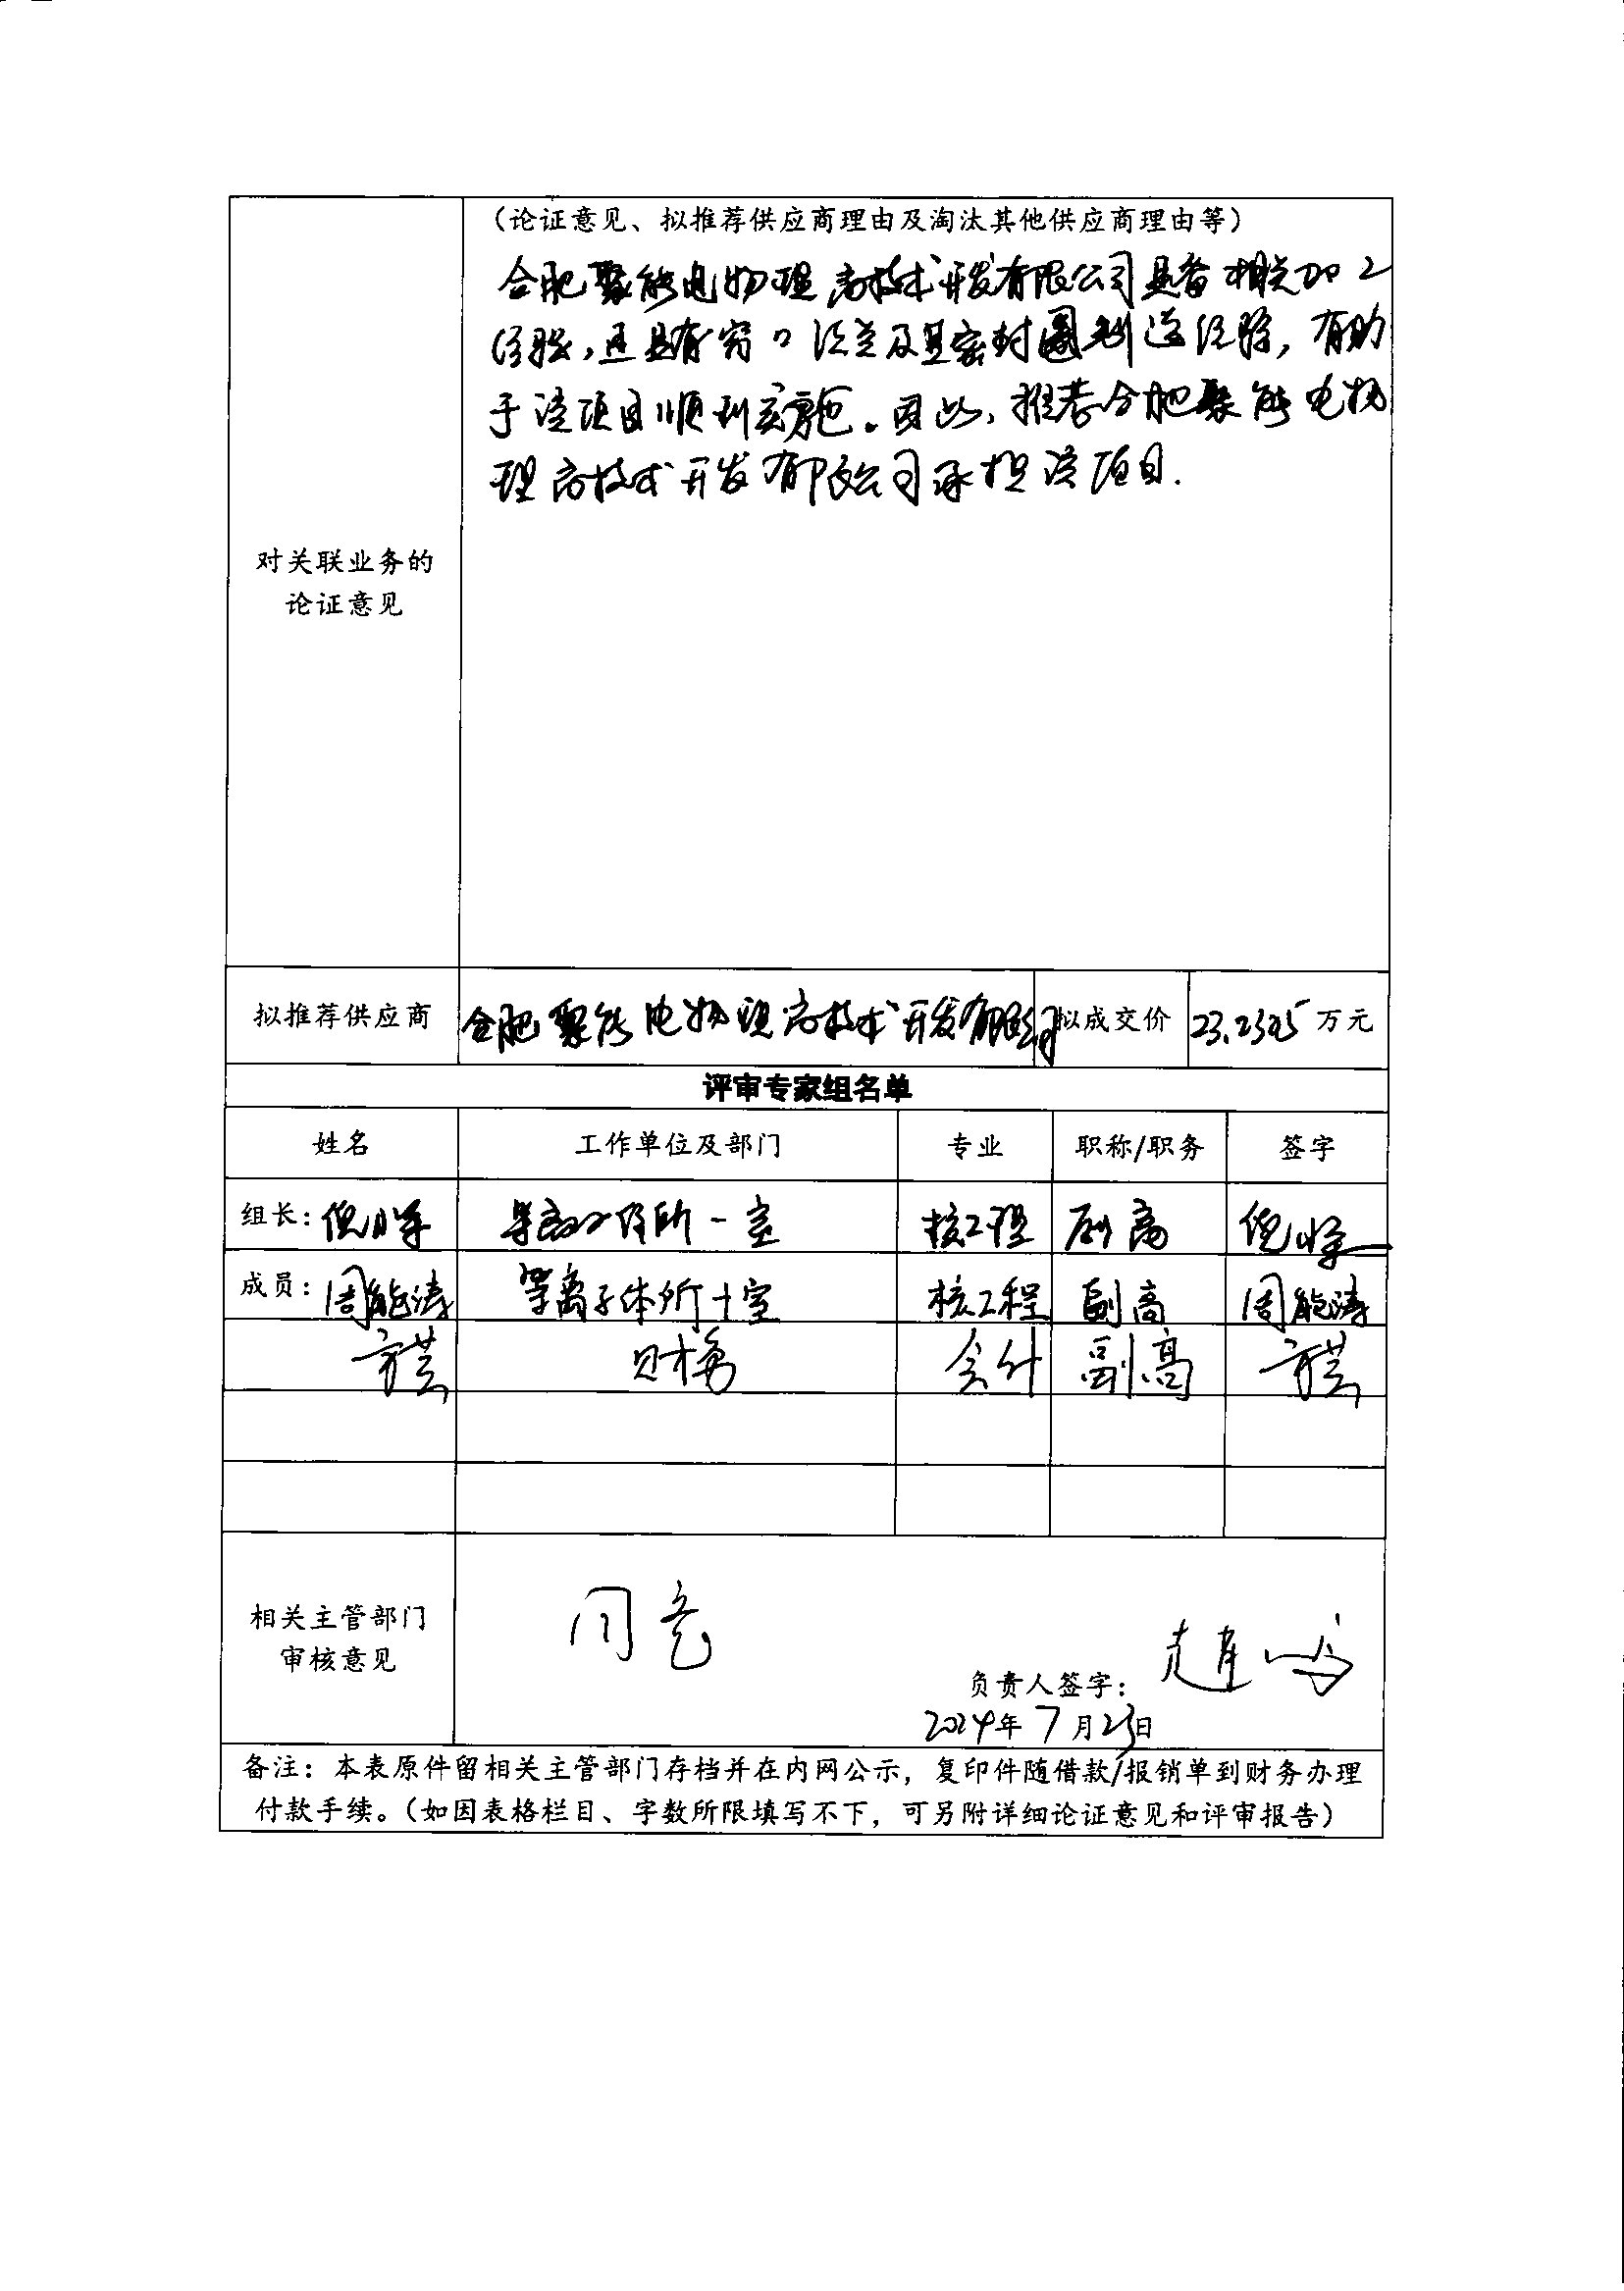 （论证意见、拟推荐供应商理由及淘汰其他供应商理由等）
合肥聚能电物理高技术开发有限公司具备相关加工
经验，还具有窗口法兰及其密封圈制造经验，有助
于该项目顺利实施。因此，推荐合肥聚能电物
理高技术开发有限公司承担该项目.
对关联业务的
论证意见
拟推荐供应商 合肥聚能电物理高技术开发有限公司 拟成交价 23.2325 万元
评审专家组名单
姓名 工作单位及部门 专业 职称/职务 签字
组长： 所一室 核工程 副高
成员：周能涛 等离子体所十室 核工程 副高 周能涛
财务 会计 副高
相关主管部门
审核意见
同意
负责人签字：
2024年7月23日
备注：本表原件留相关主管部门存档并在内网公示，复印件随借款/报销单到财务办理
付款手续。（如因表格栏目、字数所限填写不下，可另附详细论证意见和评审报告）